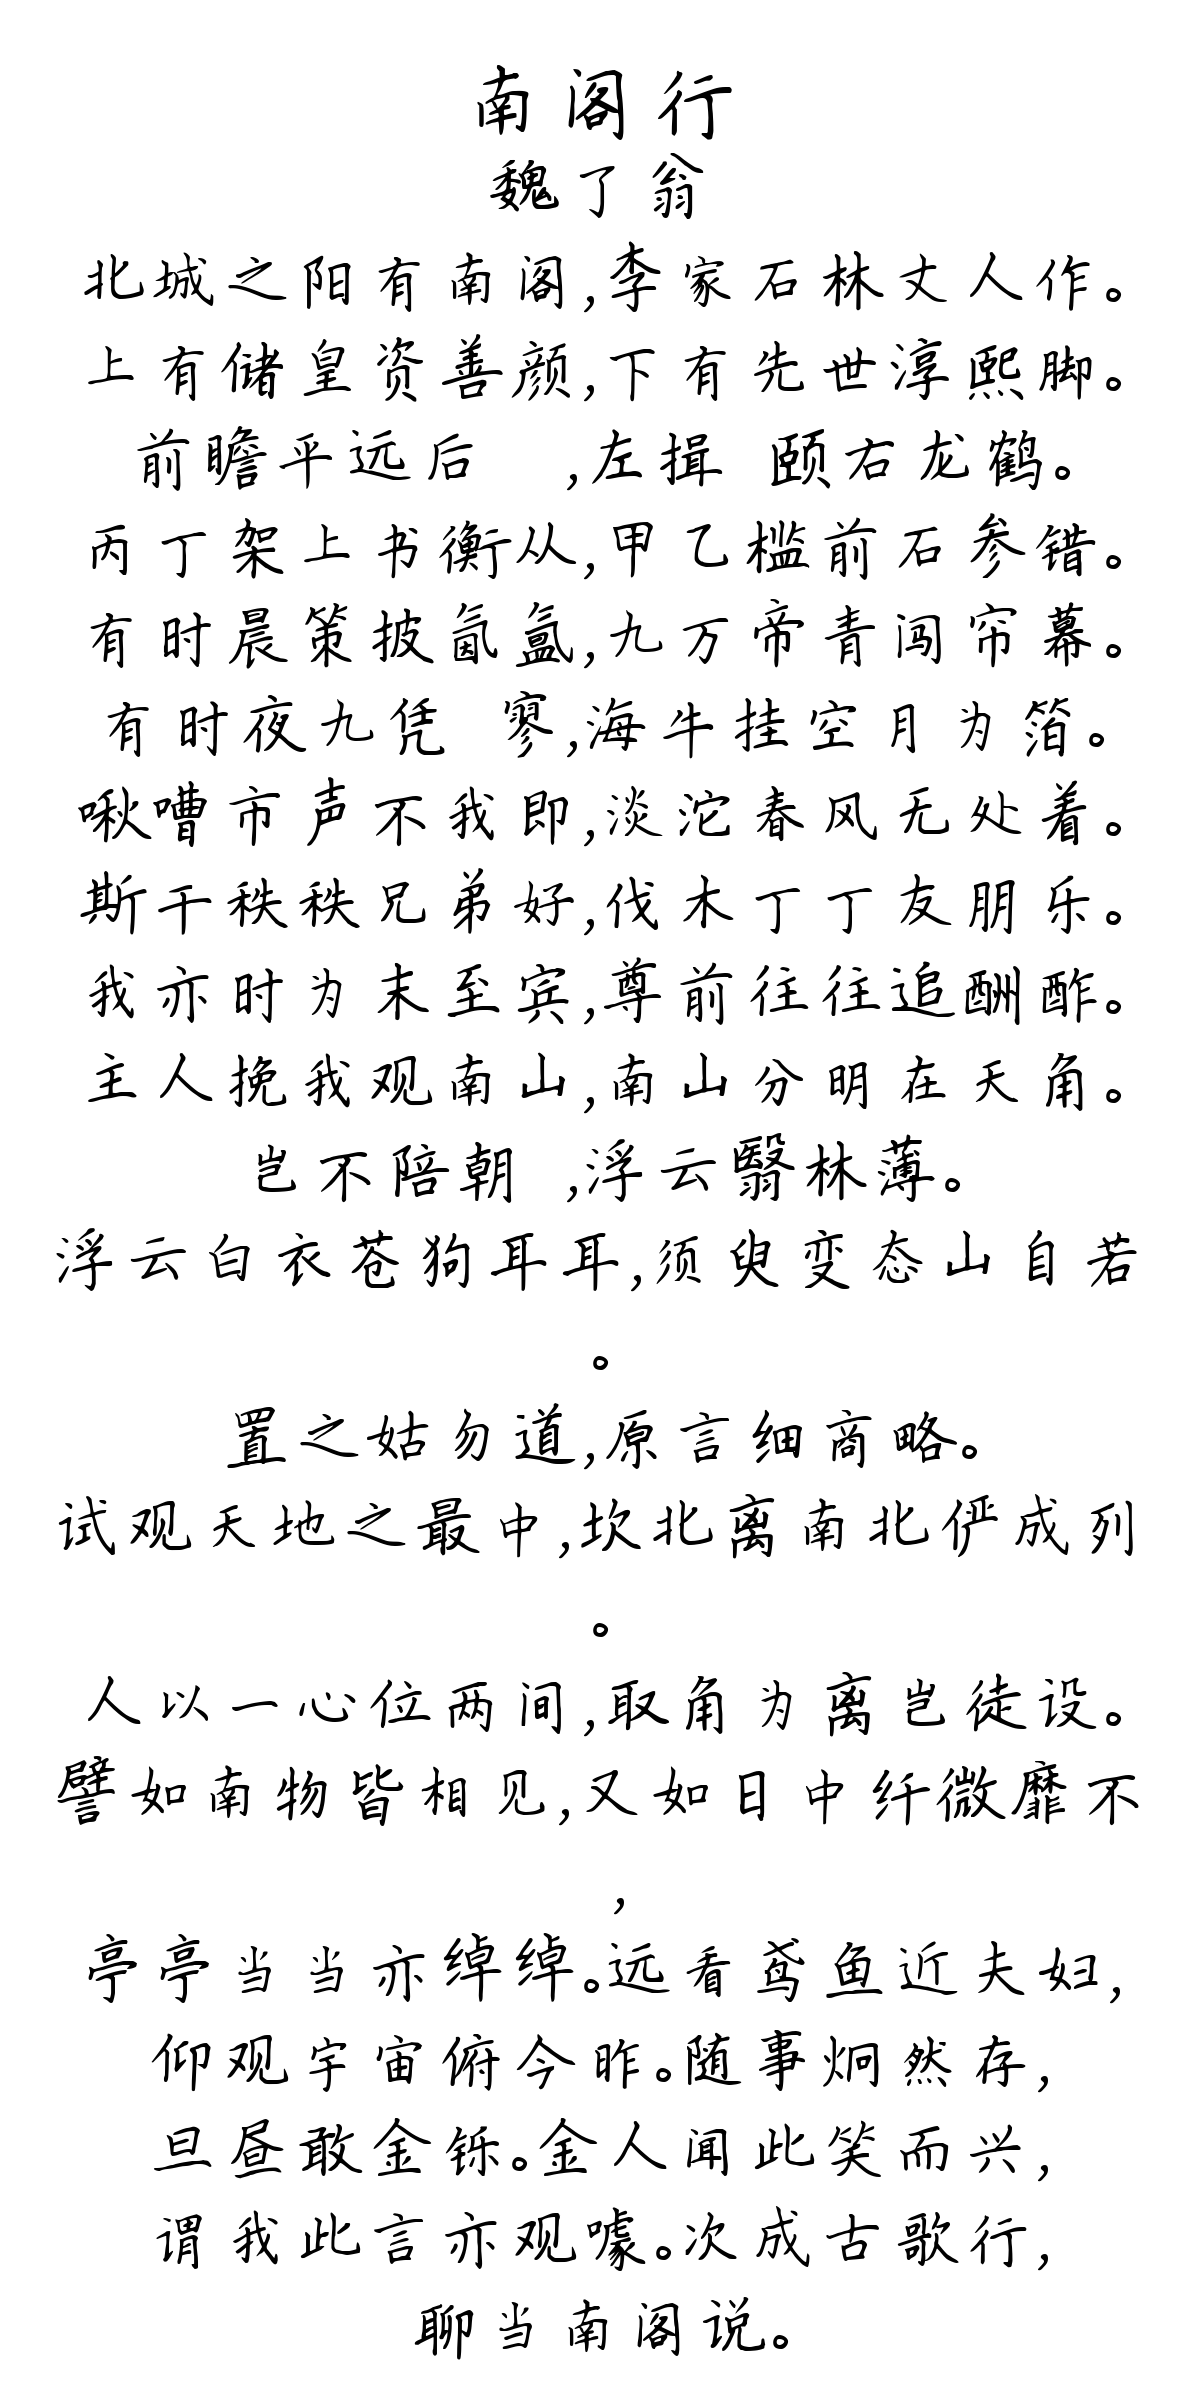 南阁行
魏了翁
北城之阳有南阁,李家石林丈人作。
上有储皇资善颜,下有先世淳熙脚。
前瞻平远后 ,左揖 颐右龙鹤。
丙丁架上书衡从,甲乙槛前石参错。
有时晨策披氤氲,九万帝青闯帘幕。
有时夜九凭 寥,海牛挂空月为箔。
啾嘈市声不我即,淡沱春风无处着。
斯干秩秩兄弟好,伐木丁丁友朋乐。
我亦时为末至宾,尊前往往追酬酢。
主人挽我观南山,南山分明在天角。
岂不陪朝 ,浮云翳林薄。
浮云白衣苍狗耳耳,须臾变态山自若
。
置之姑勿道,原言细商略。
试观天地之最中,坎北离南北俨成列
。
人以一心位两间,取角为离岂徒设。
譬如南物皆相见,又如日中纤微靡不
,
亭亭当当亦绰绰。远看鸢鱼近夫妇,
仰观宇宙俯今昨。随事炯然存,
旦昼敢金铄。金人闻此笑而兴,
谓我此言亦观噱。次成古歌行,
聊当南阁说。